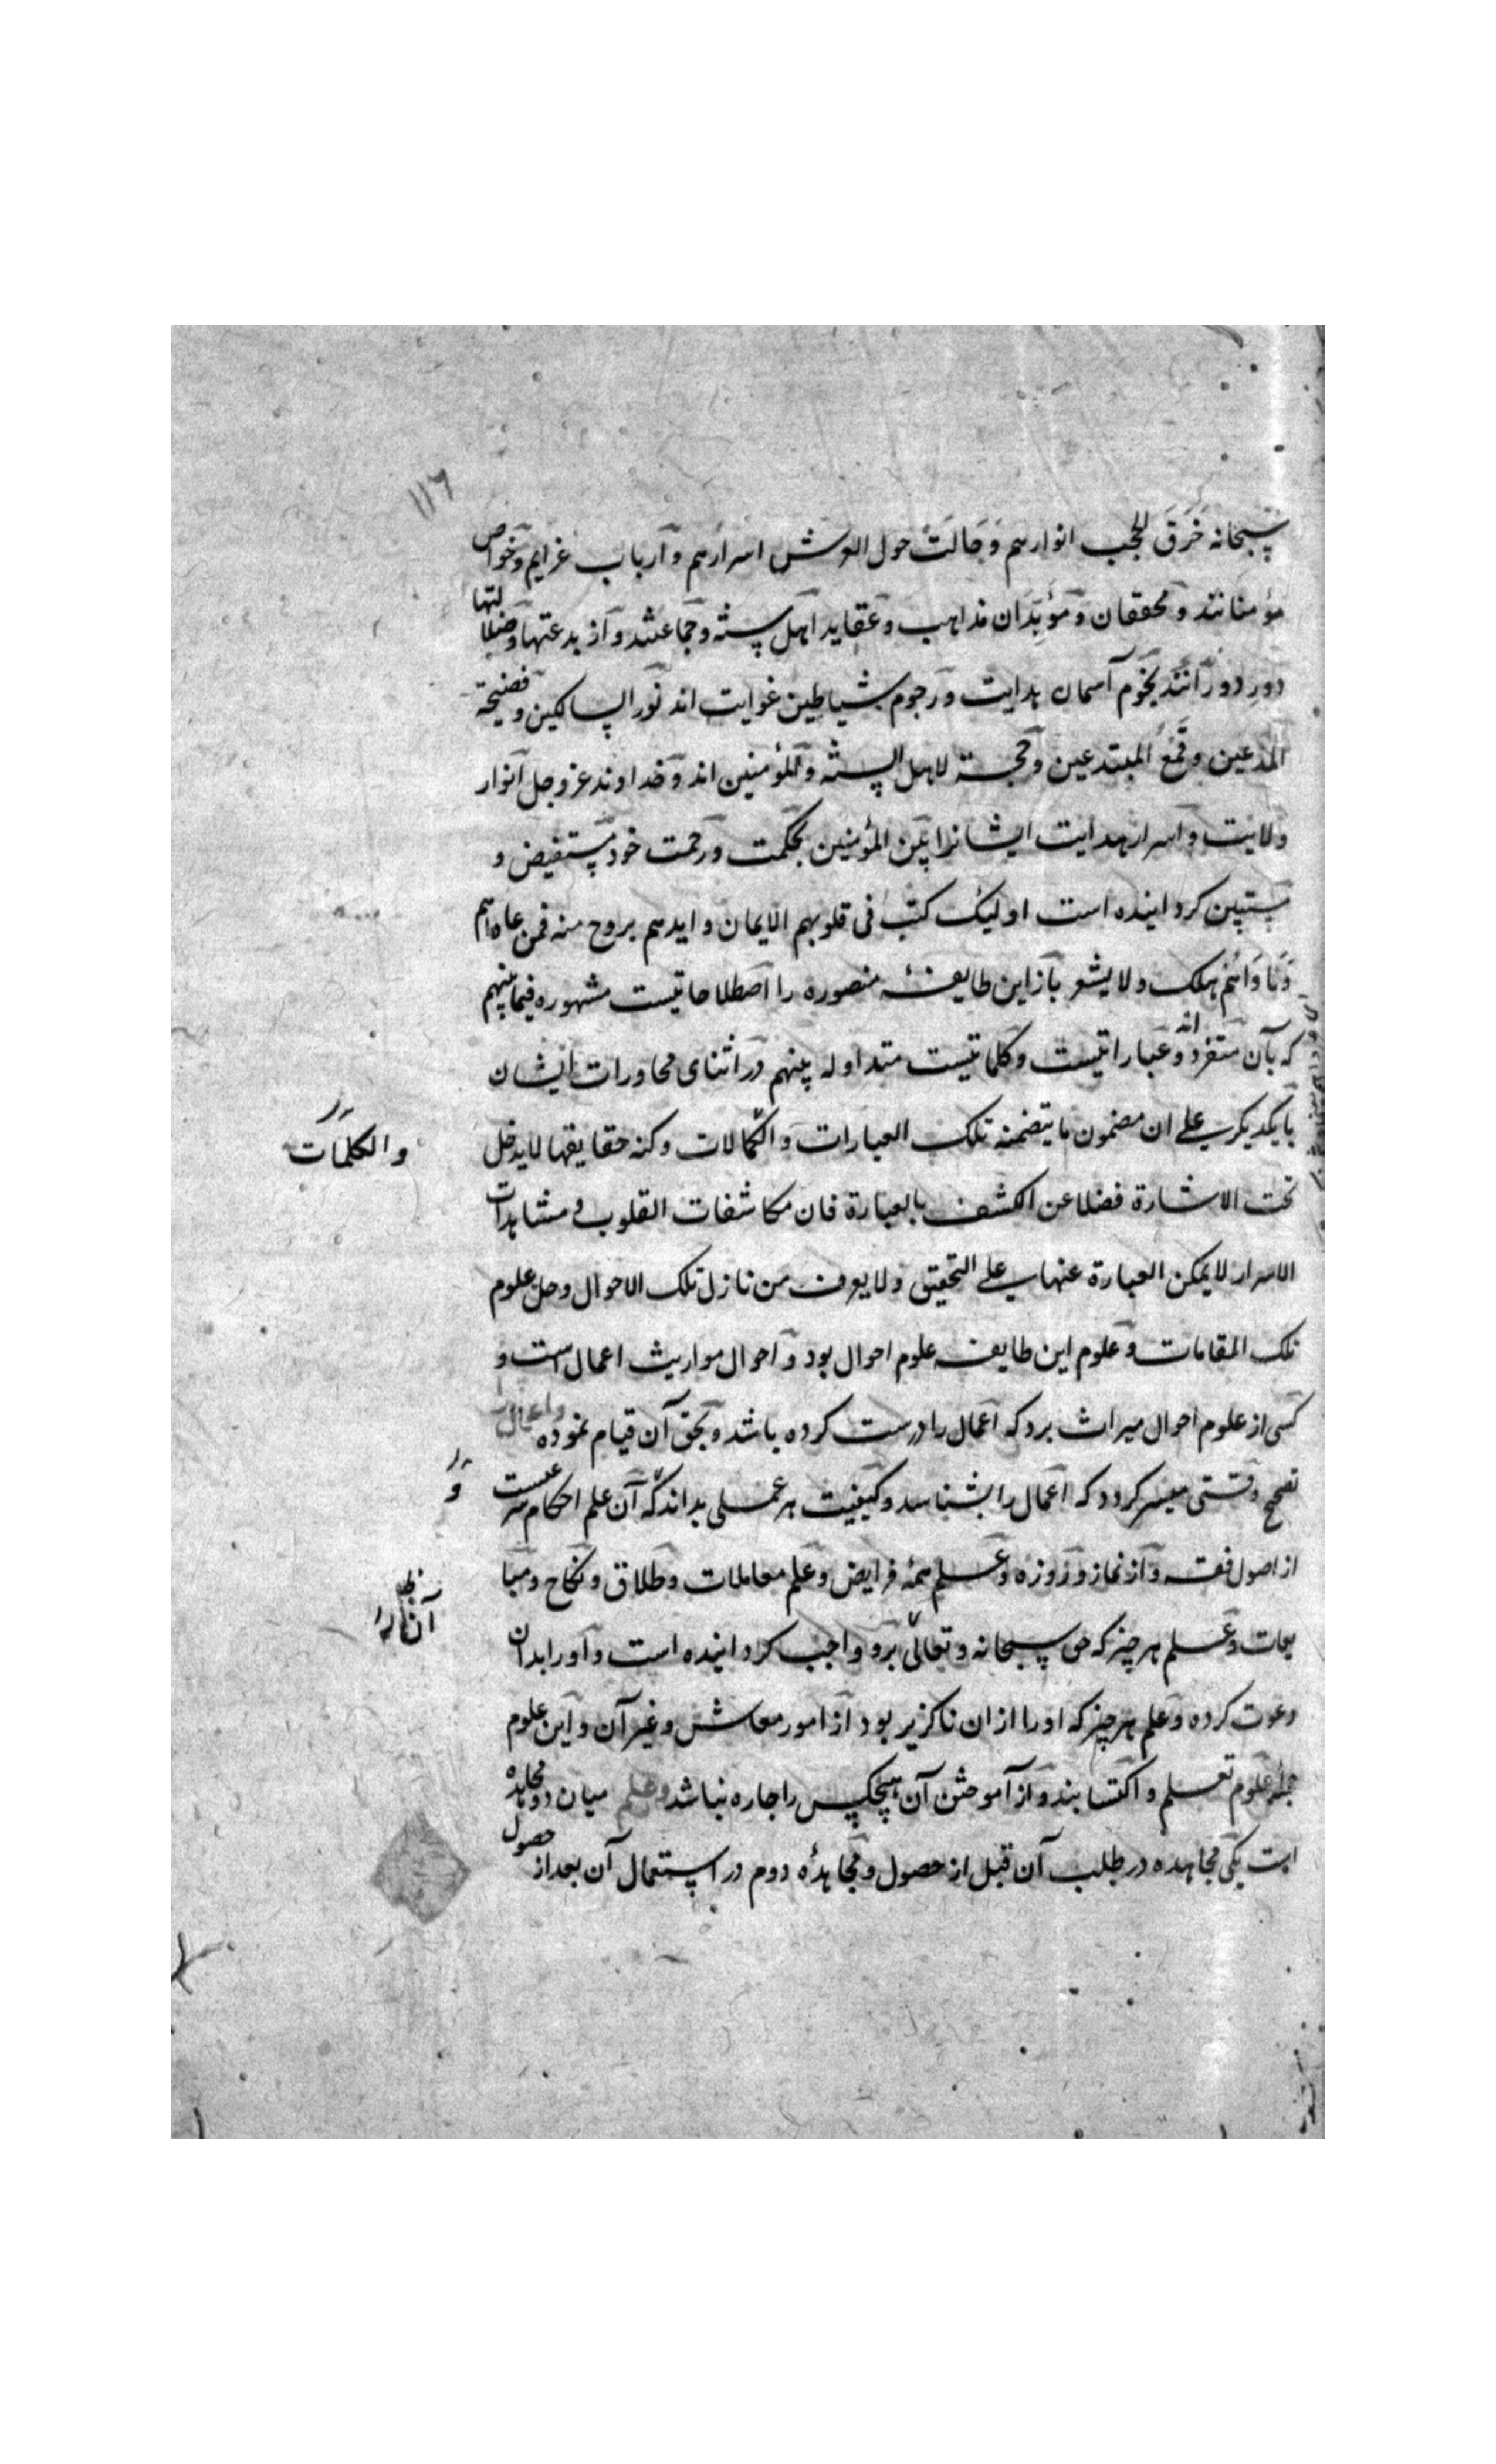 ۱۱٦
سبحانه خَرَقَ الحجب انوارهم وَجَالَتْ حول العرش اسرارهم و ارباب عزایم و خواص
مؤمنانند و محققان و مؤیدان مذاهب و عقاید اهل سنه و جماعتند و از بدعتها و ضلالتها
دور دورانند نجوم آسمان هدایت و رجوم شیاطین غوایت اند نور السالکین و فضیحة
المدعین و قمع المبتدعین و حجة لاهل السنه و المؤمنین اند و خداوند عز و جل انوار
ولایت و اسرار هدایت ایشانرا بین المؤمنین بحکمت و رحمت خود مستفیض و
مستبین کردانیده است اولیک کتب فی قلوبهم الایمان و ایدهم بروح منه فمن عاداهم
وناواهم هلک و لا یشعر باز این طایفهٔ منصوره را اصطلاحاتیست مشهوره فیما بینهم
که بآن متفرد اند و عباراتیست و کلماتیست متداوله بینهم در اثنای محاورات ایشان
با یکدیکر علی ان مضمون ما یتضمنه تلک العبارات و الکمالات و کنه حقایقها لا یدخل
والکلمات
تحت الاشارة فضلا عن الکشف بالعبارة فان مکاشفات القلوب و مشاهدات
الاسرار لا یمکن العبارة عنها علی التحقیق و لا یعرف من نازل تلک الاحوال و حل علوم
تلک المقامات و علوم این طایفه علوم احوال بود و احوال مواریث اعمال است و
کسی از علوم احوال میراث برد که اعمال را درست کرده باشد و بحق آن قیام نموده و اعمال را
تصحیح وقتی میسر کردد که اعمال را بشناسد و کیفیت هر عملی بداند که آن علم احکام شرعیست
و
از اصول فقه و از نماز و روزه و علم همه فرایض و علم معاملات و طلاق و نکاح و مبا
یعات و علم هر چیز که حق سبحانه و تعالی برو واجب کردانیده است و او را بدان
دعوت کرده و علم هر چیز که او را از ان ناکزیر بود از امور معاش و غیر آن و این علوم
جمله علوم تعلم و اکتسابند و از آموختن آن هیچکس را چاره نباشد و علم میان دو مجاهده
است یکی مجاهده در طلب آن قبل از حصول و مجاهدهٔ دوم در استعمال آن بعد از حصول